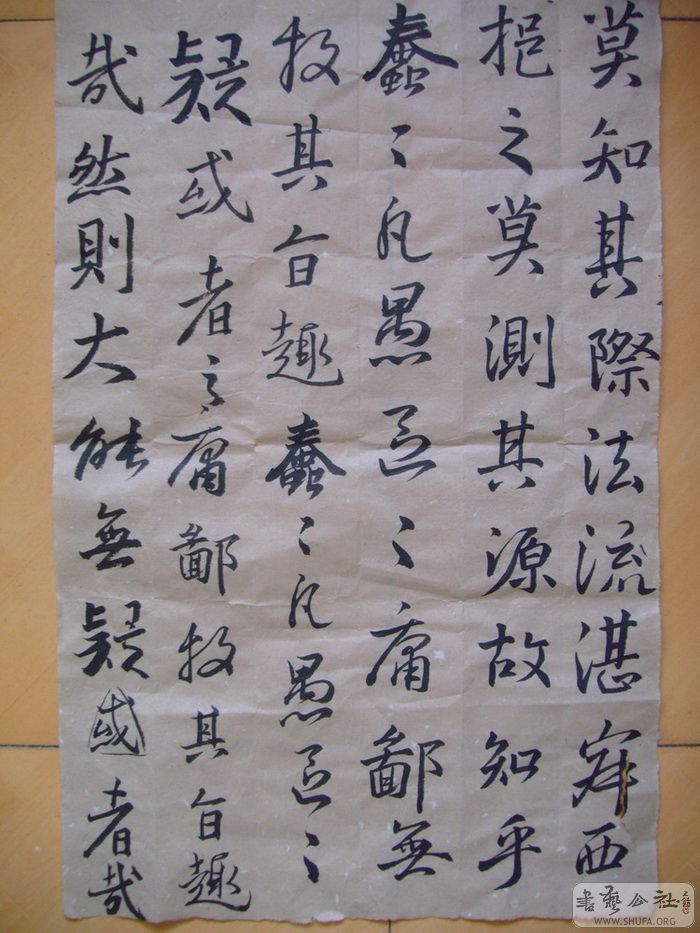 莫知其際法流湛寂西
挹之莫測其源故知乎
蠢〻凡愚區〻庸鄙無
投其旨趣蠢〻凡愚區〻
疑或者之庸鄙投其旨趣
哉然則大能無疑惑者哉
書藝公社
WWW.SHUFA.ORG